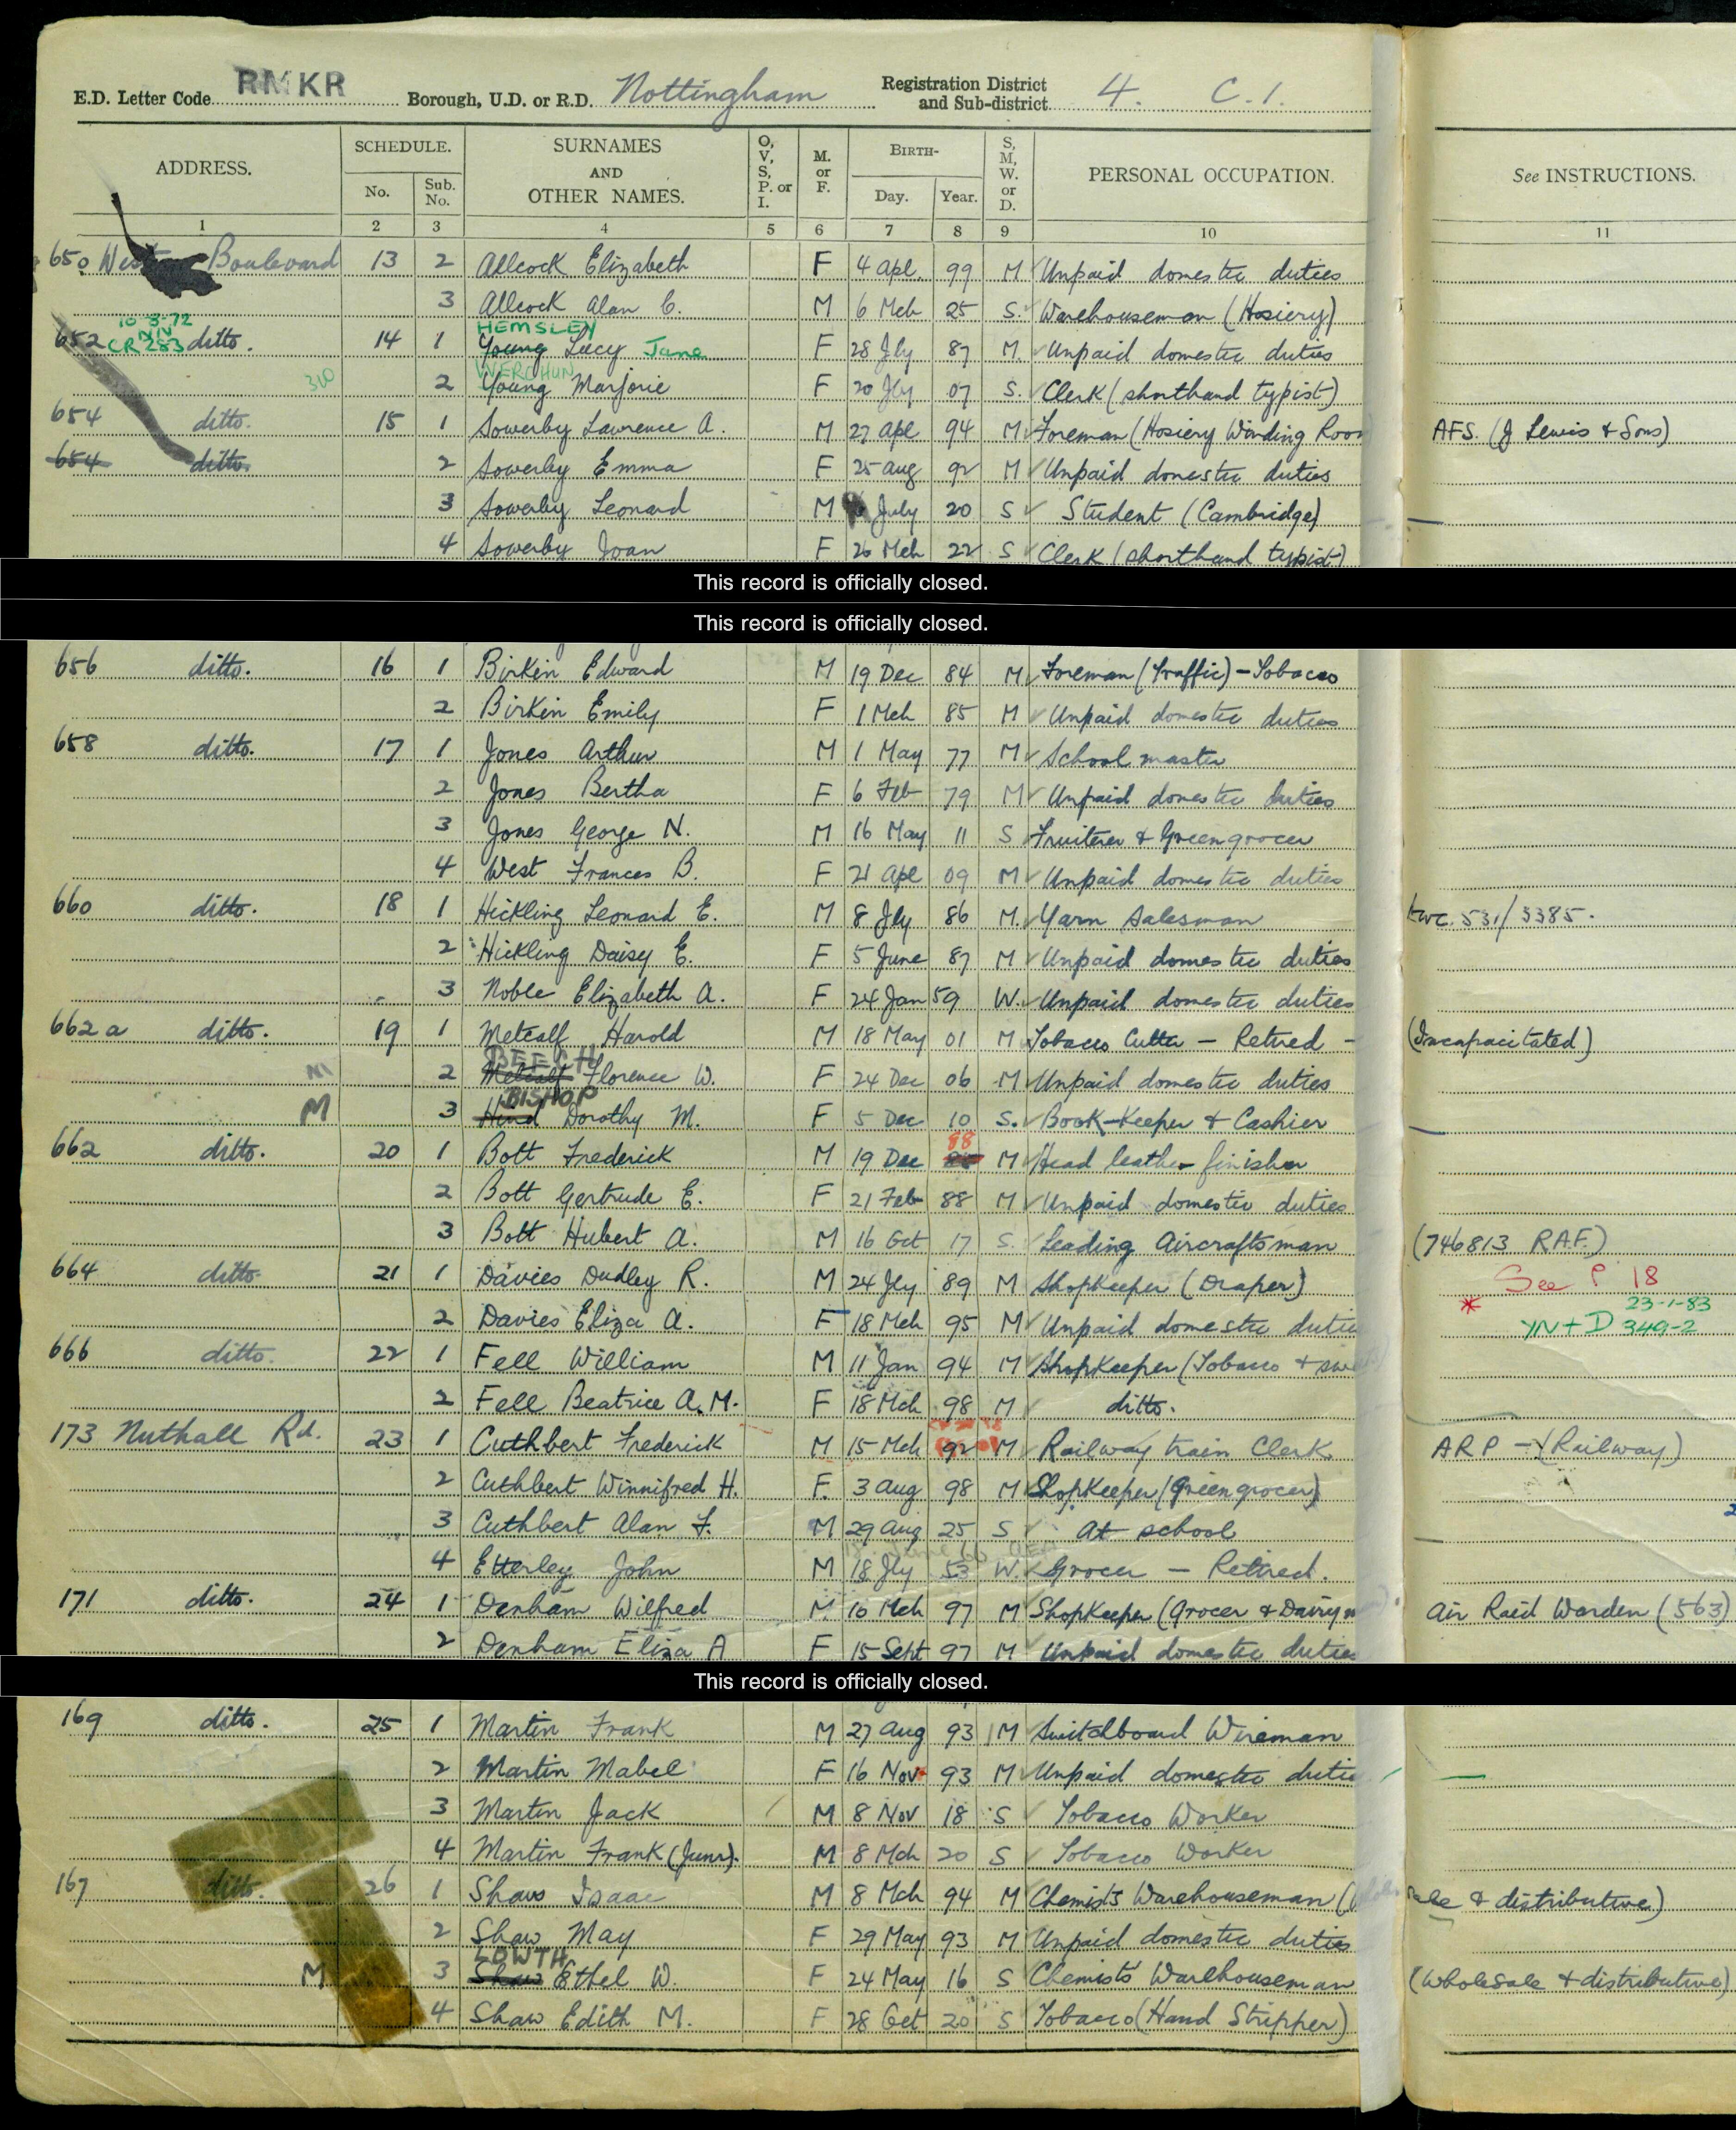 E.D. Letter Code RMKR Borough, U.D. or R.D. Nottingham Registration District and Sub-district 4. C.1.
ADDRESS. SCHEDULE. No. Sub. No. SURNAMES AND OTHER NAMES. O, V, S, P. or I. M. or F. BIRTH- Day. Year. S, M, W. or D. PERSONAL OCCUPATION. See INSTRUCTIONS.
1 2 3 4 5 6 7 8 9 10 11
650 West Boulevard 13 2 Allcock Elizabeth F 4 Apl. 99 M. Unpaid domestic duties
3 Allcock Alan C. M 6 Mch 25 S. Warehouseman (Hosiery)
10-3-72 HEMSLEY
652 CR 283 ditto. 14 1 Young Lucy Jane F 28 Jly 87 M. Unpaid domestic duties
WERCHUN
2 Young Marjorie F 20 Jly 07 S. Clerk (shorthand typist)
654 ditto. 15 1 Sowerby Lawrence A. M 27 Apl 94 M Foreman (Hosiery Winding Room AFS. (J Lewis & Sons)
654 ditto. 2 Sowerby Emma F 25 Aug 92 M Unpaid domestic duties
3 Sowerby Leonard M July 20 S Student (Cambridge)
4 Sowerby Joan F 26 Mch 22 S Clerk (shorthand typist)
This record is officially closed.
This record is officially closed.
656 ditto. 16 1 Birkin Edward M 19 Dec 84 M Foreman (Traffic) - Tobacco
2 Birkin Emily F 1 Mch 85 M Unpaid domestic duties
658 ditto. 17 1 Jones Arthur M 1 May 77 M School master
2 Jones Bertha F 6 Feb 79 M Unpaid domestic duties
3 Jones George N. M 16 May 11 S Fruiterer & Greengrocer
4 West Frances B. F 21 Apl 09 M Unpaid domestic duties
660 ditto. 18 1 Hickling Leonard E. M 8 Jly 86 M. Yarn Salesman 531/3385.
2 Hickling Daisy E. F 5 June 87 M Unpaid domestic duties
3 Noble Elizabeth A. F 24 Jan 59 W. Unpaid domestic duties
662a ditto. 19 1 Metcalf Harold M 18 May 01 M Tobacco Cutter - Retired - (Incapacitated)
BEECH
M 2 Metcalf Florence W. F 24 Dec 06 M Unpaid domestic duties
BISHOP
M 3 Hind Dorothy M. F 5 Dec 10 S. Book-Keeper & Cashier
88
662 ditto. 20 1 Bott Frederick M 19 Dec M Head leather finisher
2 Bott Gertrude E. F 21 Feb 88 M Unpaid domestic duties
3 Bott Hubert A. M 16 Oct 17 S. Leading Aircraftsman (746813 R.A.F.)
664 ditto. 21 1 Davies Dudley R. M 24 Jly 89 M Shopkeeper (Draper) See P 18
23-1-83
2 Davies Eliza A. F 18 Mch 95 M Unpaid domestic dutie * YN+D 349-2
666 ditto. 22 1 Fell William M 11 Jan 94 M Shopkeeper (Tobacco &
2 Fell Beatrice A.M. F 18 Mch 98 M ditto.
173 Nuthall Rd. 23 1 Cuthbert Frederick M 15 Mch 92 M Railway train Clerk ARP - (Railway)
2 Cuthbert Winnifred H. F. 3 Aug 98 M Shopkeeper (Greengrocer)
3 Cuthbert Alan F. M 29 Aug 25 S At school
4 Etterley John M 18 Jly 53 W. Grocer - Retired.
171 ditto. 24 1 Denham Wilfred M 10 Mch 97 M Shopkeeper (Grocer & Dairym Air Raid Warden (563)
2 Denham Eliza A F 15 Sept 97 M Unpaid domestic duties
This record is officially closed.
169 ditto. 25 1 Martin Frank M 27 Aug 93 M Switchboard Wireman
2 Martin Mabel F 16 Nov 93 M Unpaid domestic dutie
3 Martin Jack M 8 Nov 18 S Tobacco Worker
4 Martin Frank (Junr). M 8 Mch 20 S Tobacco Worker
167 ditto. 26 1 Shaw Isaac M 8 Mch 94 M Chemists Warehouseman (Wholesale & distributive)
2 Shaw May F 29 May 93 M Unpaid domestic duties
LOWTH
M 3 Shaw Ethel W. F 24 May 16 S Chemists Warehouseman (Wholesale & distributive)
4 Shaw Edith M. F 28 Oct 20 S Tobacco (Hand Stripper)